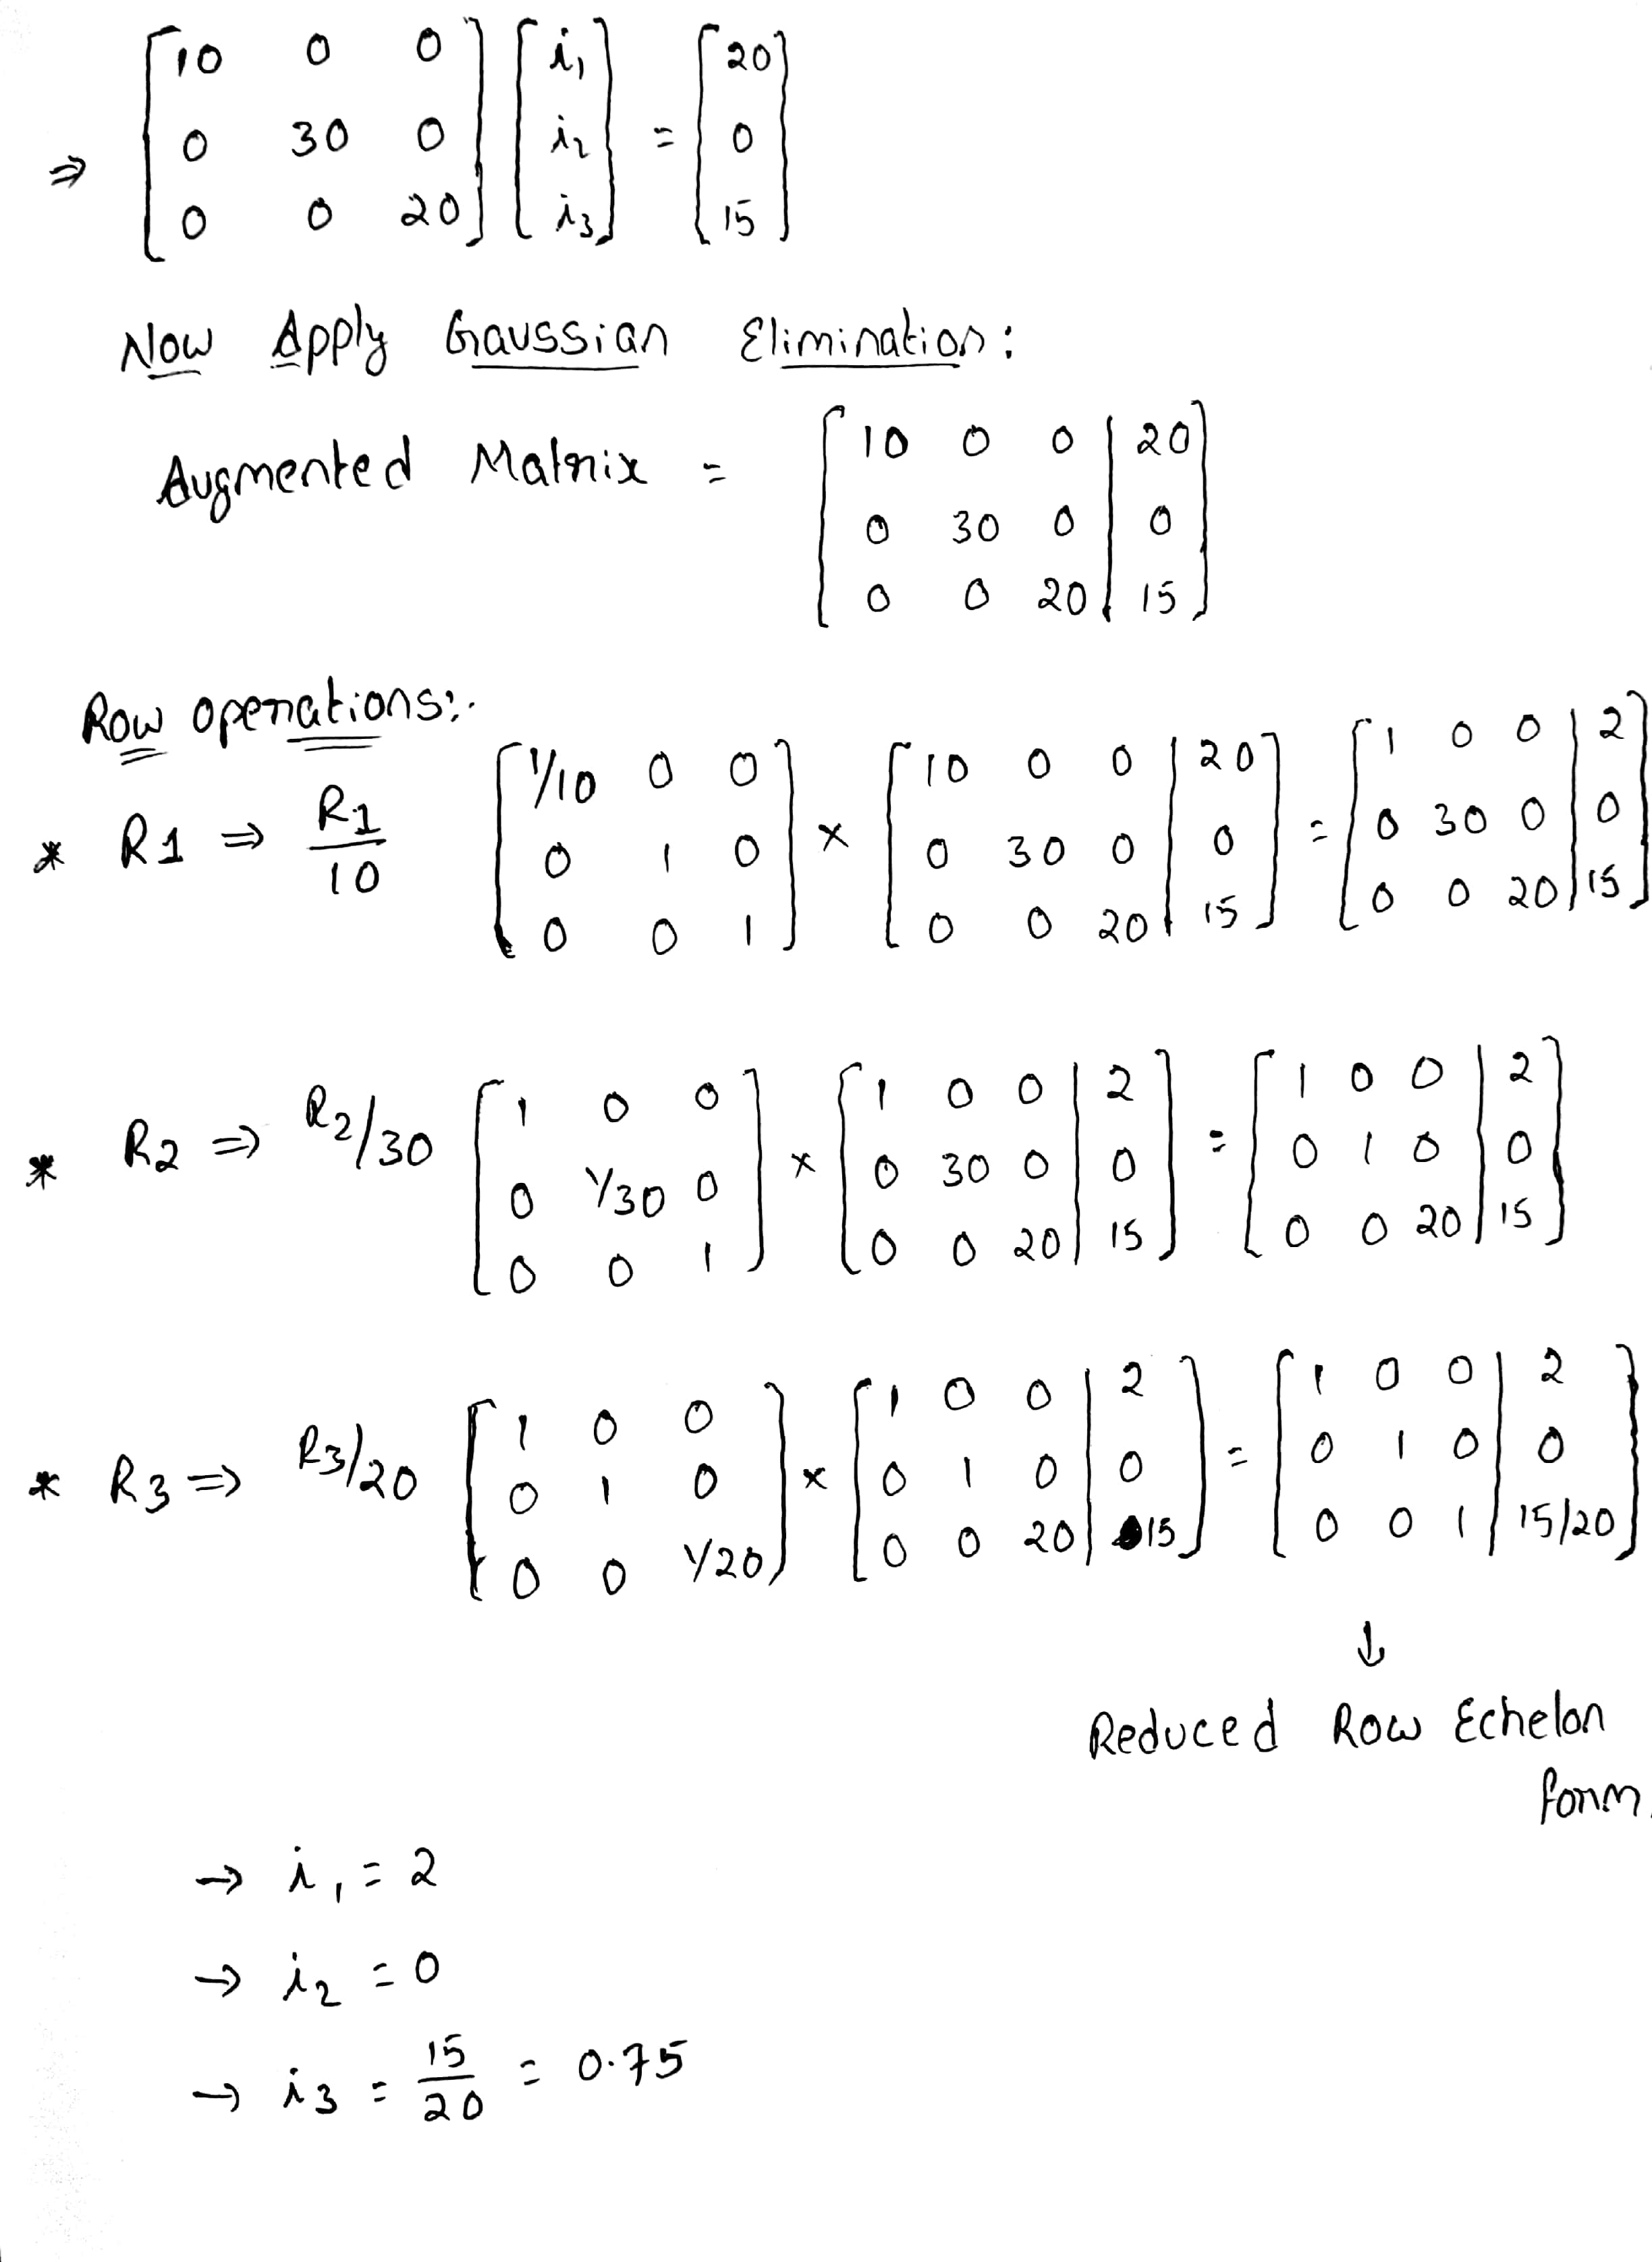 ⇒ [10 0 0; 0 30 0; 0 0 20] [i₁; i₂; i₃] = [20; 0; 15]
Now Apply Gaussian Elimination:
Augmented Matrix = [10 0 0 | 20; 0 30 0 | 0; 0 0 20 | 15]
Row operations:
* R1 ⇒ R1/10 [1/10 0 0; 0 1 0; 0 0 1] × [10 0 0 | 20; 0 30 0 | 0; 0 0 20 | 15] = [1 0 0 | 2; 0 30 0 | 0; 0 0 20 | 15]
* R2 ⇒ R2/30 [1 0 0; 0 1/30 0; 0 0 1] × [1 0 0 | 2; 0 30 0 | 0; 0 0 20 | 15] = [1 0 0 | 2; 0 1 0 | 0; 0 0 20 | 15]
* R3 ⇒ R3/20 [1 0 0; 0 1 0; 0 0 1/20] × [1 0 0 | 2; 0 1 0 | 0; 0 0 20 | 15] = [1 0 0 | 2; 0 1 0 | 0; 0 0 1 | 15/20]
↓
Reduced Row Echelon
form.
→ i₁ = 2
→ i₂ = 0
→ i₃ = 15/20 = 0.75